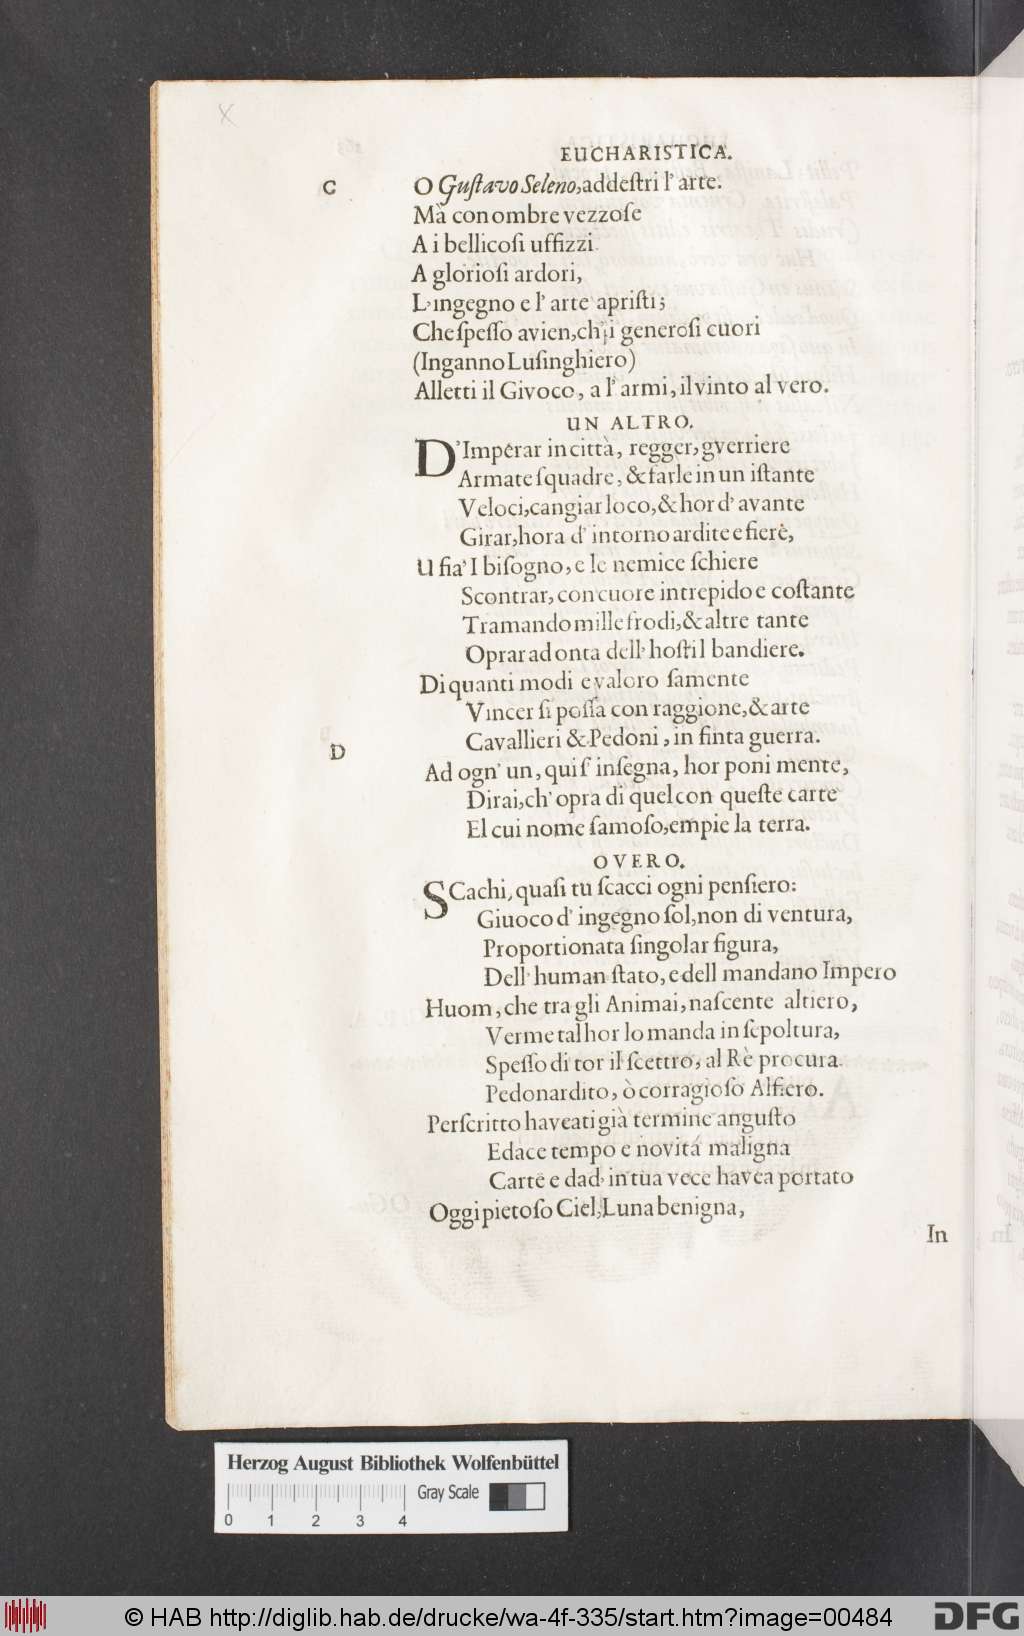 EUCHARISTICA.
C
O Guſtavo Seleno, addeſtri l' arte.
Mà con ombre vezzoſe
A i bellicoſi uffizzi
A glorioſi ardori,
L' ingegno e l' arte apriſti;
Che ſpeſſo avien, ch' i generoſi cuori
(Inganno Luſinghiero)
Alletti il Givoco, a l' armi, il vinto al vero.
UN ALTRO.
D' Imperar in città, regger, gverriere
Armate ſquadre, & farle in un iſtante
Veloci, cangiar loco, & hor d' avante
Girar, hora d' intorno ardite e fierè,
U ſia' I biſogno, e le nemice ſchiere
Scontrar, con cuore intrepido e coſtante
Tramando mille frodi, & altre tante
Oprar ad onta dell' hoſtil bandiere.
Di quanti modi e valoro ſamente
Vincer ſi poſſa con raggione, & arte
Cavallieri & Pedoni, in finta guerra.
D
Ad ogn' un, qui ſ' inſegna, hor poni mente,
Dirai, ch' opra di quel con queſte carte
El cui nome famoſo, empie la terra.
OVERO.
SCachi, quaſi tu ſcacci ogni penſiero:
Giuoco d' ingegno ſol, non di ventura,
Proportionata ſingolar figura,
Dell' human ſtato, e dell mandano Impero
Huom, che tra gli Animai, naſcente altiero,
Verme tal hor lo manda in ſepoltura,
Speſſo di tor il ſcettro, al Rè procura.
Pedon ardito, ò corragioſo Alfiero.
Perſcritto haveati già termine anguſto
Edace tempo e novitá maligna
Carte e dad' in tua vece havea portato
Oggi pietoſo Ciel, Luna benigna,
In
Herzog August Bibliothek Wolfenbüttel
Gray Scale
0 1 2 3 4
© HAB http://diglib.hab.de/drucke/wa-4f-335/start.htm?image=00484
DFG